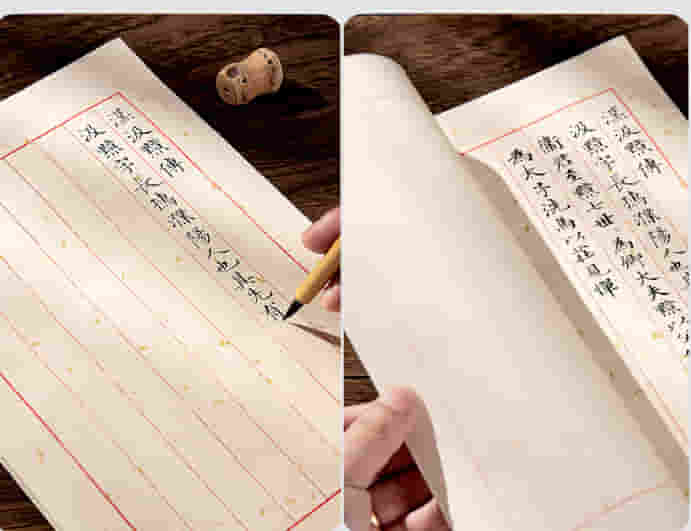 漢汲黯傳
汲黯字長孺濮陽人也其先有
漢汲黯傳
汲黯字長孺濮陽人也
衛君至黯七世為卿大夫黯以父
為太子洗馬以莊見憚